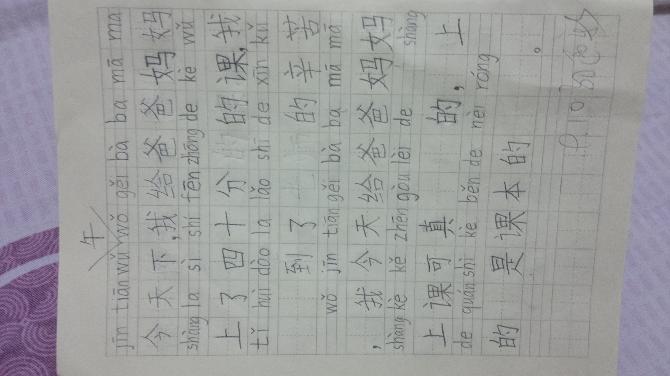 午
jīn tiān wǔ wǒ gěi bà ba mā ma
今天下,我给爸爸妈妈
shàng la sì shí fēn zhōng de kè wǔ
上了四十分的课,我
tǐ huì dào la lǎo shī de xīn kǔ
到了的辛苦
wǒ jīn tiān gěi bà ba mā mā
,我今天给爸爸妈妈
shàng kè kě zhēn gòu lèi de shàng
上课可真的,上
de quán shì kè běn de nèi róng
的是课本的。